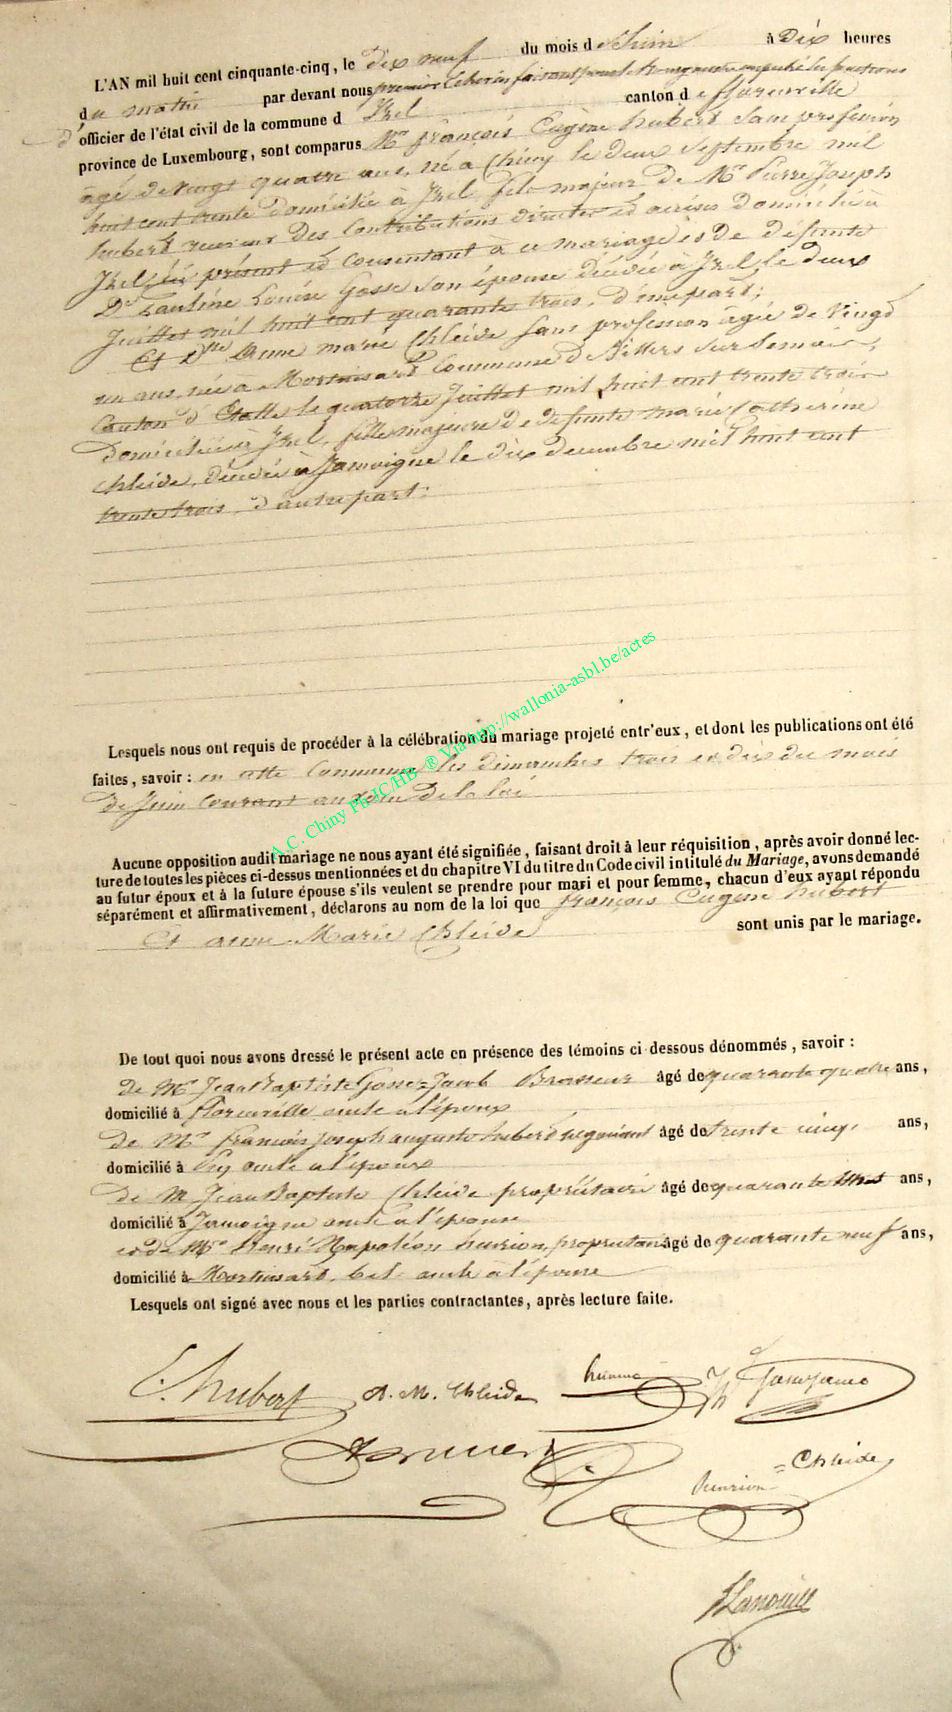 L'AN mil huit cent cinquante-cinq, le dix neuf du mois de Juin à Dix heures
du matin par devant nous premier Echevin faisant pour le Bourgmestre empêché les fonctions
d'officier de l'état civil de la commune d Izel canton de florenville
province de Luxembourg, sont comparus Mr françois Eugène hubert Sans profession
âgé de vingt quatre ans, né à Chiny le deux Septembre mil
huit cent trente domicilié à Izel, fils majeur de Mr Pierre Joseph
hubert receveur des Contributions directes et accises domicilié à
Izel, ici présent et Consentant à ce mariage et de défunte
De Pauline Louise Gosse son épouse décédée à Izel, le deux
Juillet mil huit cent quarante trois, d'une part;
Et Dlle Anne marie Chleide Sans profession âgée de Vingt
un ans, née à Mortinsart Commune de Villers Sur Semois,
Canton d'Etalle le quatorze Juillet mil huit cent trente trois
Domiciliée à Izel, fille majeure de défunte marie Catherine
Chleide, décédée à Jamoigne le dix decembre mil huit cent
trente trois, d'autre part.
Lesquels nous ont requis de procéder à la célébration du mariage projeté entr'eux, et dont les publications ont été
faites, savoir : en cette Commune les dimanches trois et dix du mois
de Juin courant au vœu de la loi
A.C. Chiny Ph JC/HB ® Via http://wallonia-asbl.be/actes
Aucune opposition audit mariage ne nous ayant été signifiée, faisant droit à leur réquisition, après avoir donné lec-
ture de toutes les pièces ci-dessus mentionnées et du chapitre VI du titre du Code civil intitulé du Mariage, avons demandé
au futur époux et à la future épouse s'ils veulent se prendre pour mari et pour femme, chacun d'eux ayant répondu
séparément et affirmativement, déclarons au nom de la loi que françois Eugène hubert
Et anne Marie Chleide sont unis par le mariage.
De tout quoi nous avons dressé le présent acte en présence des témoins ci-dessous dénommés, savoir :
de Mr Jean Baptiste Gosse-Jacob Brasseur âgé de quarante quatre ans,
domicilié à florenville oncle à l'époux
de Mr françois Joseph auguste hubert négociant âgé de trente cinq ans,
domicilié à oncle à l'époux
de M Jean Baptiste Chleide propriétaire âgé de quarante ans,
domicilié à Jamoigne oncle à l'épouse
et de Mr henri Napoléon henrion, propriétaire âgé de quarante neuf ans,
domicilié à Mortinsart, bel oncle à l'épouse
Lesquels ont signé avec nous et les parties contractantes, après lecture faite.
E. hubert A. M. Chleide
Chleide
henrion